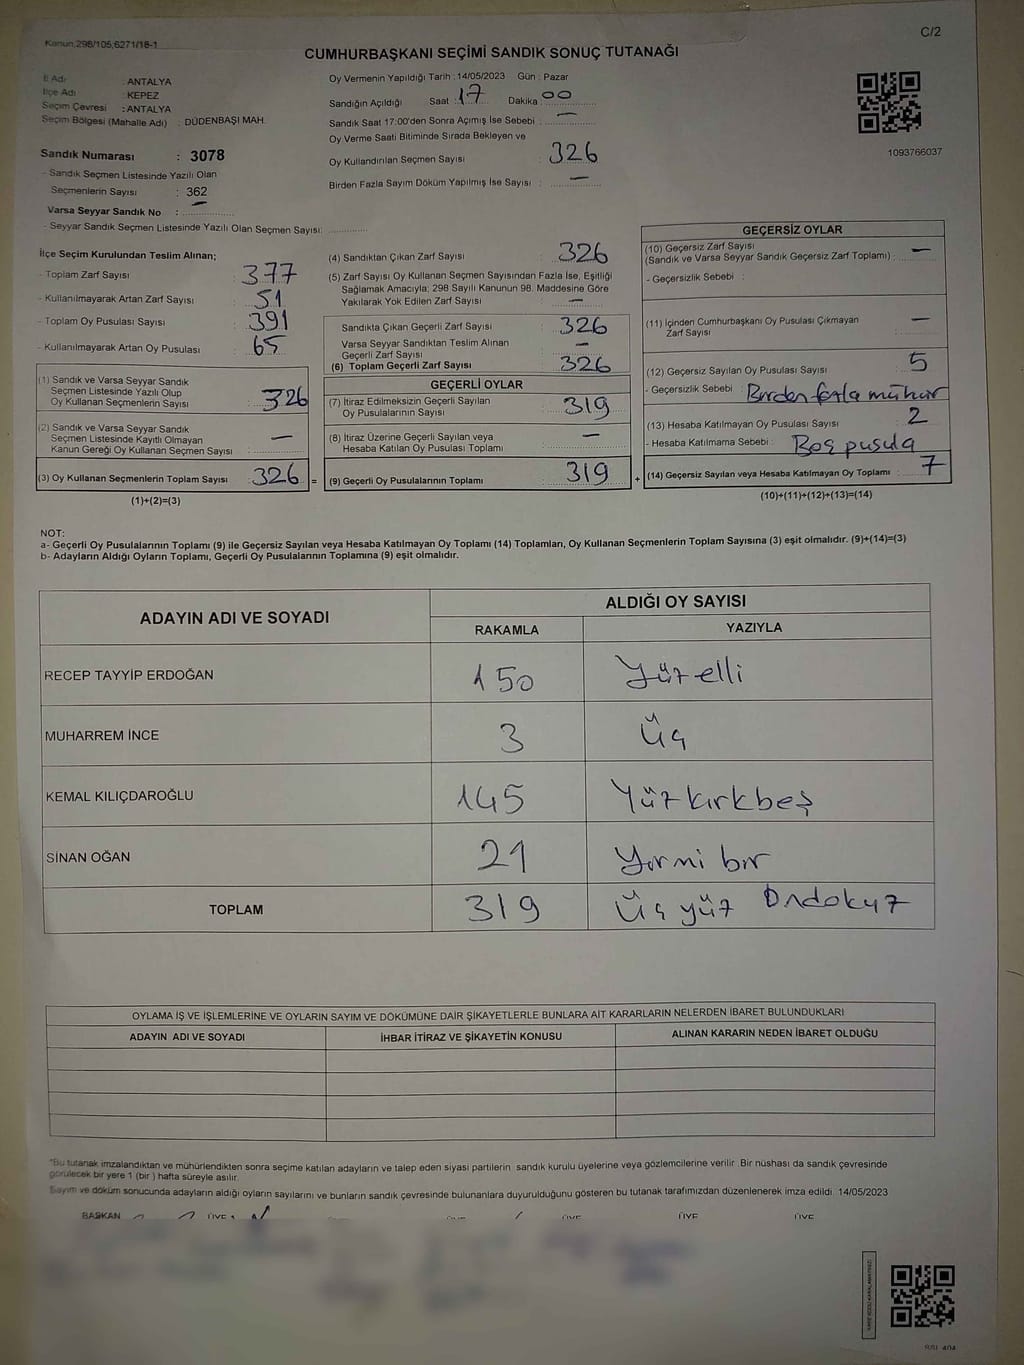 Kanun;298/105,6271/18-1
C/2
CUMHURBAŞKANI SEÇİMİ SANDIK SONUÇ TUTANAĞI
İl Adı : ANTALYA
İlçe Adı : KEPEZ
Seçim Çevresi : ANTALYA
Seçim Bölgesi (Mahalle Adı) : DÜDENBAŞI MAH.
Sandık Numarası : 3078
- Sandık Seçmen Listesinde Yazılı Olan
Seçmenlerin Sayısı : 362
Varsa Seyyar Sandık No : —
- Seyyar Sandık Seçmen Listesinde Yazılı Olan Seçmen Sayısı:
Oy Vermenin Yapıldığı Tarih : 14/05/2023 Gün : Pazar
Sandığın Açıldığı Saat : 17 Dakika : 00
Sandık Saat 17:00'den Sonra Açımış İse Sebebi : —
Oy Verme Saati Bitiminde Sırada Bekleyen ve
Oy Kullandırılan Seçmen Sayısı : 326
Birden Fazla Sayım Döküm Yapılmış İse Sayısı : —
1093766037
İlçe Seçim Kurulundan Teslim Alınan;
- Toplam Zarf Sayısı : 377
- Kullanılmayarak Artan Zarf Sayısı : 51
- Toplam Oy Pusulası Sayısı : 391
- Kullanılmayarak Artan Oy Pusulası : 65
(1) Sandık ve Varsa Seyyar Sandık
Seçmen Listesinde Yazılı Olup
Oy Kullanan Seçmenlerin Sayısı : 326
(2) Sandık ve Varsa Seyyar Sandık
Seçmen Listesinde Kayıtlı Olmayan
Kanun Gereği Oy Kullanan Seçmen Sayısı : —
(3) Oy Kullanan Seçmenlerin Toplam Sayısı : 326 =
(1)+(2)=(3)
(4) Sandıktan Çıkan Zarf Sayısı : 326
(5) Zarf Sayısı Oy Kullanan Seçmen Sayısından Fazla İse, Eşitliği
Sağlamak Amacıyla; 298 Sayılı Kanunun 98. Maddesine Göre
Yakılarak Yok Edilen Zarf Sayısı : —
Sandıkta Çıkan Geçerli Zarf Sayısı : 326
Varsa Seyyar Sandıktan Teslim Alınan
Geçerli Zarf Sayısı : —
(6) Toplam Geçerli Zarf Sayısı : 326
GEÇERLİ OYLAR
(7) İtiraz Edilmeksizin Geçerli Sayılan
Oy Pusulalarının Sayısı : 319
(8) İtiraz Üzerine Geçerli Sayılan veya
Hesaba Katılan Oy Pusulası Toplamı : —
(9) Geçerli Oy Pusulalarının Toplamı : 319 +
GEÇERSİZ OYLAR
(10) Geçersiz Zarf Sayısı
(Sandık ve Varsa Seyyar Sandık Geçersiz Zarf Toplamı) : —
- Geçersizlik Sebebi :
(11) İçinden Cumhurbaşkanı Oy Pusulası Çıkmayan
Zarf Sayısı : —
(12) Geçersiz Sayılan Oy Pusulası Sayısı : 5
- Geçersizlik Sebebi : Birden fazla mühür
(13) Hesaba Katılmayan Oy Pusulası Sayısı : 2
- Hesaba Katılmama Sebebi : Boş pusula
(14) Geçersiz Sayılan veya Hesaba Katılmayan Oy Toplamı : 7
(10)+(11)+(12)+(13)=(14)
NOT:
a- Geçerli Oy Pusulalarının Toplamı (9) ile Geçersiz Sayılan veya Hesaba Katılmayan Oy Toplamı (14) Toplamları, Oy Kullanan Seçmenlerin Toplam Sayısına (3) eşit olmalıdır. (9)+(14)=(3)
b- Adayların Aldığı Oyların Toplamı, Geçerli Oy Pusulalarının Toplamına (9) eşit olmalıdır.
ADAYIN ADI VE SOYADI
ALDIĞI OY SAYISI
RAKAMLA YAZIYLA
RECEP TAYYİP ERDOĞAN 150 Yüz elli
MUHARREM İNCE 3 Üç
KEMAL KILIÇDAROĞLU 145 Yüzkırkbeş
SİNAN OĞAN 21 Yirmi bir
TOPLAM 319 Üç yüz Ondokuz
OYLAMA İŞ VE İŞLEMLERİNE VE OYLARIN SAYIM VE DÖKÜMÜNE DAİR ŞİKAYETLERLE BUNLARA AİT KARARLARIN NELERDEN İBARET BULUNDUKLARI
ADAYIN ADI VE SOYADI İHBAR İTİRAZ VE ŞİKAYETİN KONUSU ALINAN KARARIN NEDEN İBARET OLDUĞU
*Bu tutanak imzalandıktan ve mühürlendikten sonra seçime katılan adayların ve talep eden siyasi partilerin sandık kurulu üyelerine veya gözlemcilerine verilir. Bir nüshası da sandık çevresinde
görülecek bir yere 1 (bir) hafta süreyle asılır.
Sayım ve döküm sonucunda adayların aldığı oyların sayılarını ve bunların sandık çevresinde bulunanlara duyurulduğunu gösteren bu tutanak tarafımızdan düzenlenerek imza edildi. 14/05/2023
BAŞKAN ÜYE ÜYE ÜYE ÜYE ÜYE